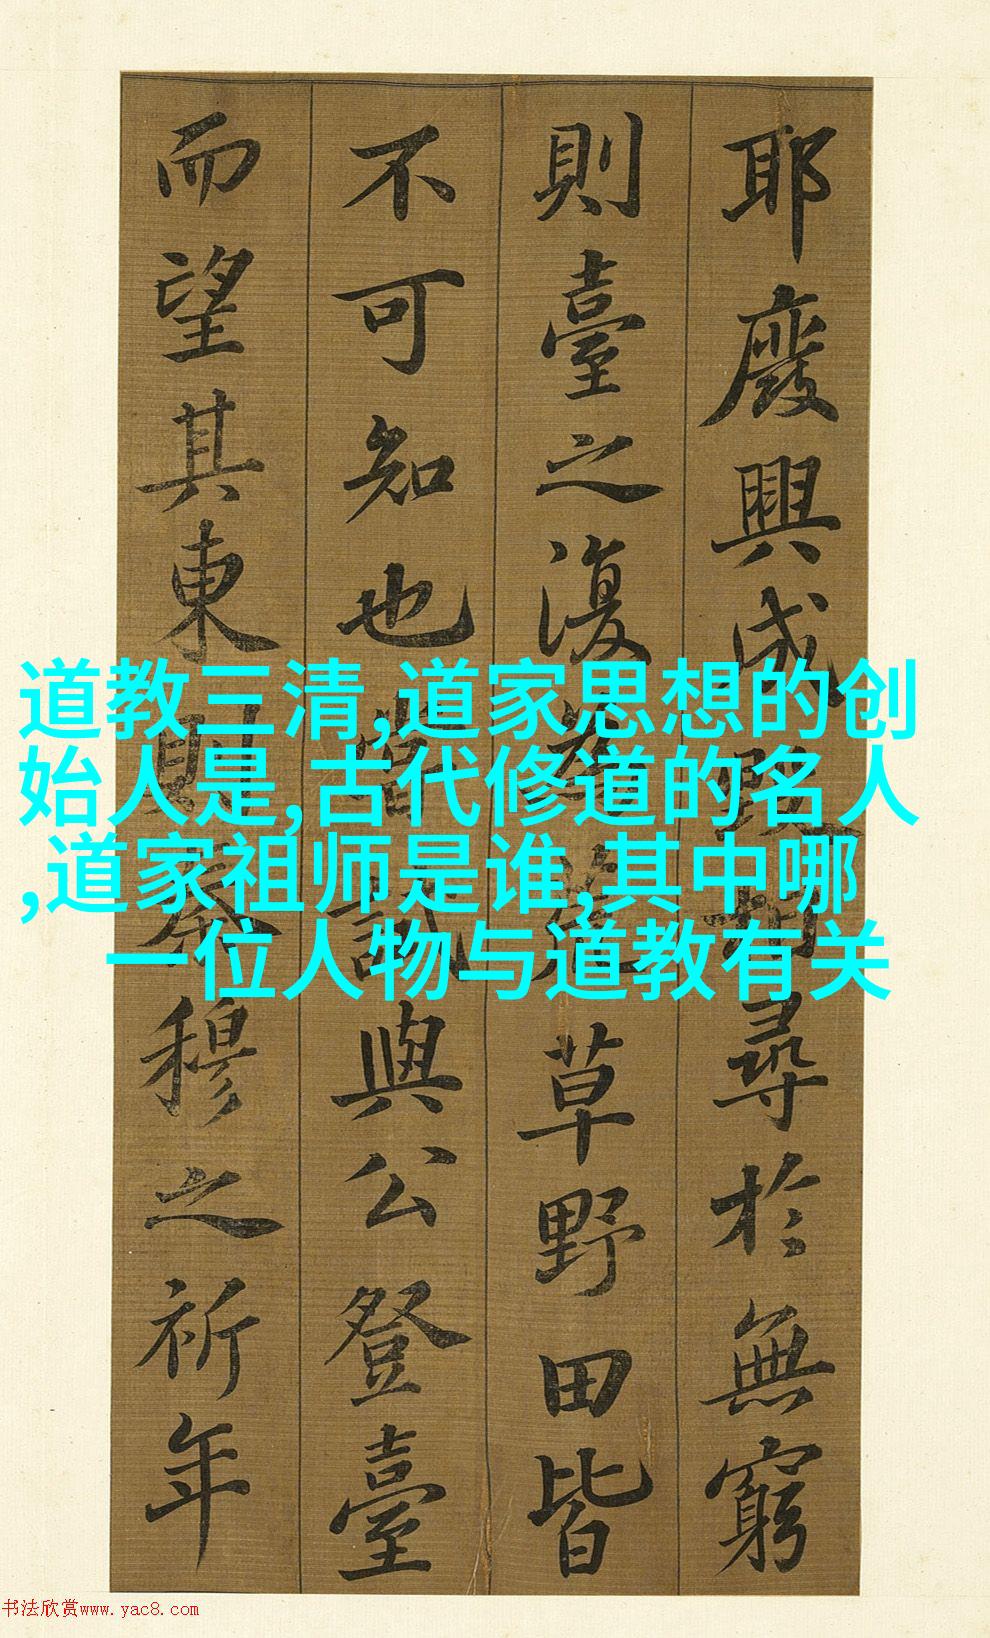 耶廢興成毀相尋於無窮
則臺之復為荒草野田皆
不可知也嘗試與公登臺
而望其東則秦穆之祈年
道教三清,道家思想的创
始人是,古代修道的名人
,道家祖师是谁,其中哪
一位人物与道教有关
书法欣赏www.yac8.com